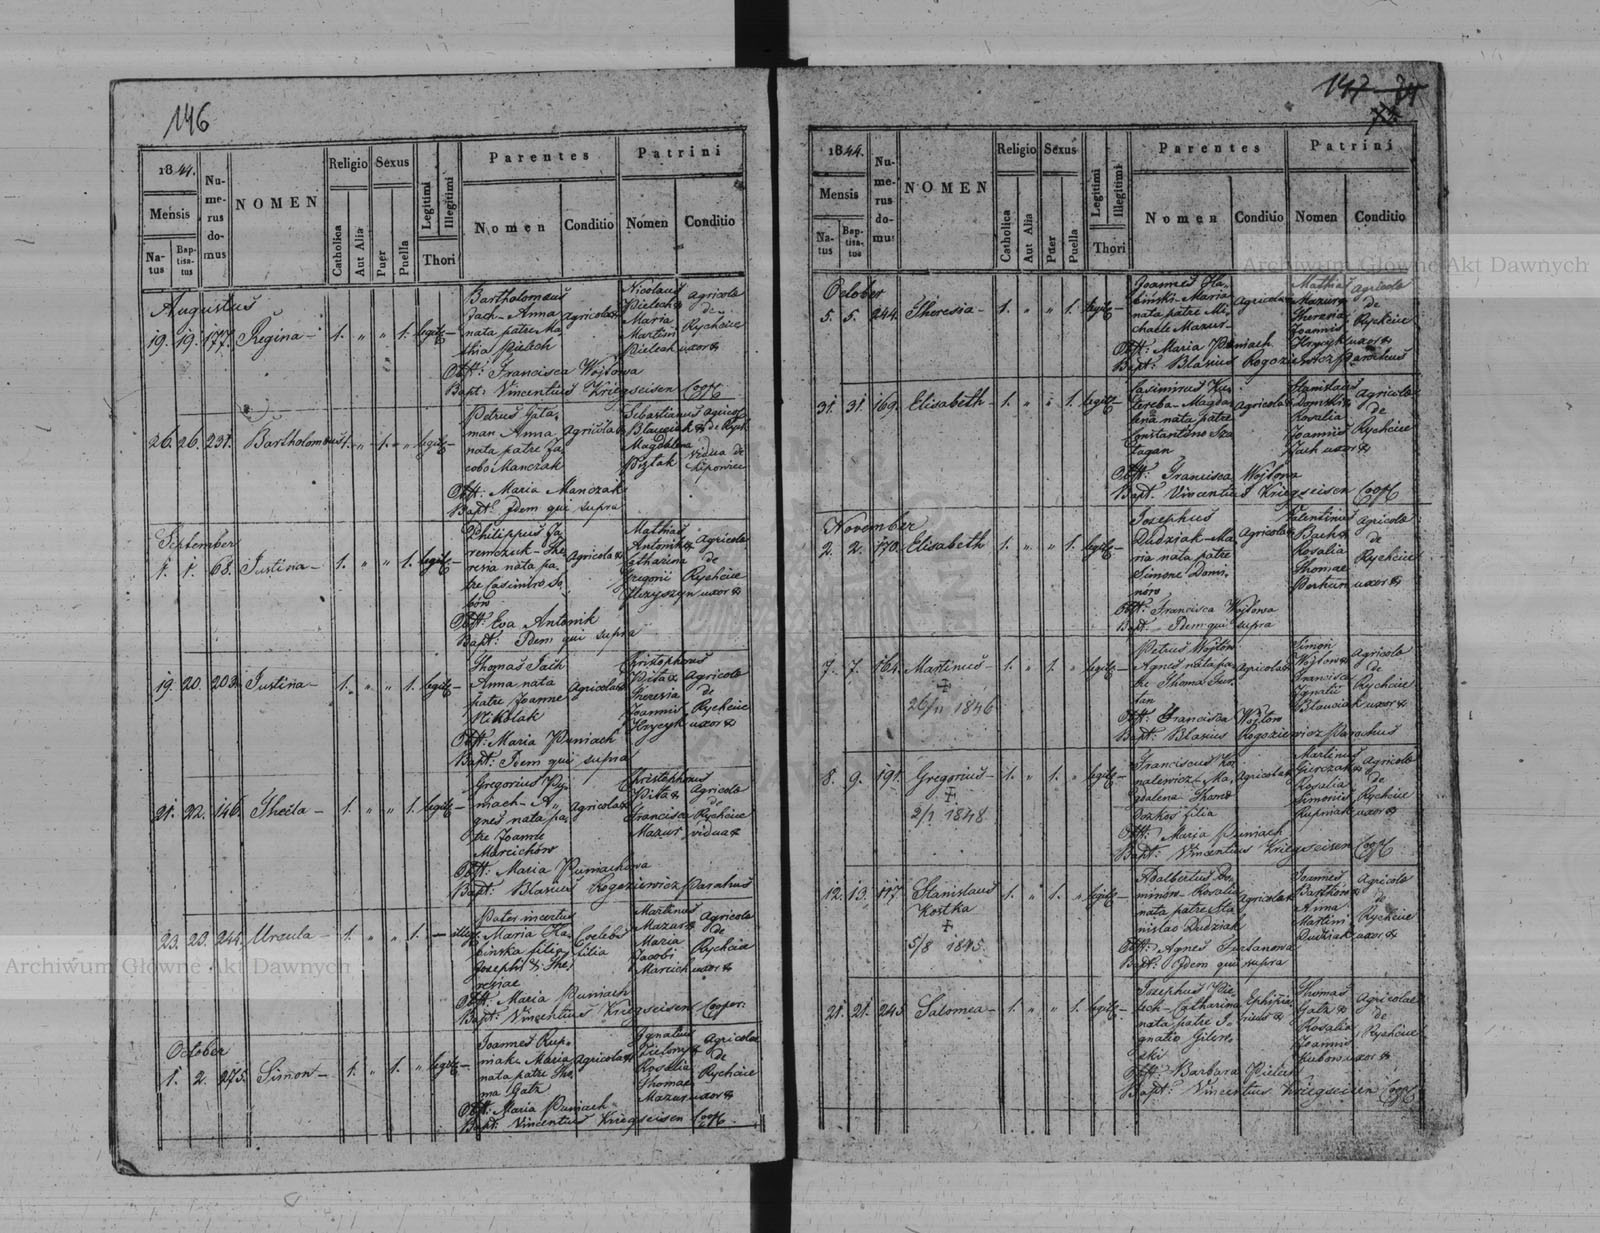 146
1844.
Mensis
Natus
Baptisatus
Numerus domus
NOMEN
Religio
Catholica
Aut Alia
Sexus
Puer
Puella
Legitimi
Illegitimi
Thori
Parentes
Nomen
Conditio
Patrini
Nomen
Conditio
Augustus
19. 19. 177. Regina - 1. " " 1. legit -
Bartholomeus
Anna
nata patre Ma-
thia Pielech
Agricola
Nicolaus
Pielech &
Maria
Martini
Pielech uxor
Agricola
de
Rychcice
Obst: Francisca Wojtowa
Bapt: Vincentius Kriegseisen Coop
26. 26. 231. Bartholomeus 1. " 1. " legit -
Petrus
man Anna
nata patre Ja-
cobo Manczak
Agricola
Sebastianus
Magdalena
vidua de
Lipowiec
Obst: Maria Manczak
Bapt: Idem qui supra
September
1. 1. 68. Justina - 1. " " 1. legit -
Philippus Ja-
remczuk - The-
resia nata pa-
tre Casimiro
Agricola
Mathias
Antonik &
Catharina
Gregorii
uxor
Agricola
de
Rychcice
Obst: Eva Antonik
Bapt: Idem qui supra
19. 20. 203. Justina - 1. " " 1. legit -
Thomas Jach
Anna nata
patre Joanne
Mikolak
Agricola
Christophorus
Pita &
Theresia
Joannis
Hrycyk uxor
Agricola
de
Rychcice
Obst: Maria Puniach
Bapt: Idem qui supra
21. 22. 146. Thecla - 1. " " 1. legit -
Gregorius Pu-
niach - A-
gnes nata pa-
tre Joanne
Marcichów
Agricola
Christophorus
Pita &
Francisca
Mazur vidua
Agricola
de
Rychcice
Obst: Maria Puniachowa
Bapt: Blasius Rogoziewicz Parochus
23. 20. 244. Ursula - 1. " " 1. - illeg
Pater incertus
Maria Ha-
binska filia
Josephi & The-
resiae
Coelebs
filia
Martinus
Mazur &
Maria
Jacobi
Marcich uxor
Agricola
de
Rychcice
Obst: Maria Puniach
Bapt: Vincentius Kriegseisen Cooper:
October
1. 2. 275. Simon - 1. " 1. " legit -
Joannes Rup-
niak - Maria
nata patre Tho-
ma Gatz
Agricola
Ignatius
Rosalia
Thomae
Mazur uxor
Agricola
de
Rychcice
Obst: Maria Puniach
Bapt: Vincentius Kriegseisen Coop
147
1844.
Mensis
Natus
Baptisatus
Numerus domus
NOMEN
Religio
Catholica
Aut Alia
Sexus
Puer
Puella
Legitimi
Illegitimi
Thori
Parentes
Nomen
Conditio
Patrini
Nomen
Conditio
October
5. 5. 244. Theresia - 1. " " 1. legit -
Joannes Ha-
binski - Maria
nata patre Mi-
chaele Mazur
Agricola
Mathias
Mazur &
Theresia
Joannis
Hrycyk uxor
Agricola
de
Rychcice
Obst: Maria Puniach
Bapt: Blasius Rogoziewicz Parochus
31. 31. 169. Elisabeth - 1. " " 1. legit -
Casimirus Ku-
tereba - Magda-
lena nata patre
Constantino Sza-
tagan
Agricola
Stanislaus
Rosalia
Joannis
Jach uxor
Agricola
de
Rychcice
Obst: Francisca Wojtowa
Bapt: Vincentius Kriegseisen Coop
November
2. 2. 170. Elisabeth 1. " " 1. legit -
Josephus
Dudziak - Ma-
ria nata patre
Simone Domi-
now
Agricola
Valentinus
Bach &
Rosalia
Thomae
uxor
Agricola
de
Rychcice
Obst: Francisca Wojtowa
Bapt: Idem qui supra
7. 7. 164. Martinus - 1. " 1. " legit -
26/11 1846
Petrus Wojtow
Agnes nata pa-
tre Thoma Fur-
tan
Agricola
Simon
Wojtow &
Francisca
Ignatii
uxor
Agricola
de
Rychcice
Obst: Francisca Wojtow
Bapt: Blasius Rogoziewicz Parochus
8. 9. 191. Gregorius - 1. " 1. " legit -
2/1 1848
Franciscus Ko-
nalewicz - Ma-
gdalena
filia
Agricola
Martinus
Rosalia
Simonis
Rupniak uxor
Agricola
de
Rychcice
Obst: Maria Puniach
Bapt: Vincentius Kriegseisen Coop
12. 13. 117. Stanislaus 1. " 1. " legit -
Kostka
5/8 1845.
Adalbertus Do-
minow - Rosalia
nata patre Sta-
nislao Dudziak
Agricola
Joannes
Bartkow &
Anna
Martini
Dudziak uxor
Agricola
de
Rychcice
Obst: Agnes Furtanowa
Bapt: Idem qui supra
21. 21. 245. Salomea - 1. " " 1. legit -
Josephus Pie-
lech - Catharina
nata patre I-
gnatio Gilew-
ski
Ephipia-
rius
Thomas
Gatz &
Rosalia
Joannis
uxor
Agricolae
de
Rychcice
Obst: Barbara Pielech
Bapt: Vincentius Kriegseisen Coop
Archiwum Główne Akt Dawnych
Archiwum Główne Akt Dawnych